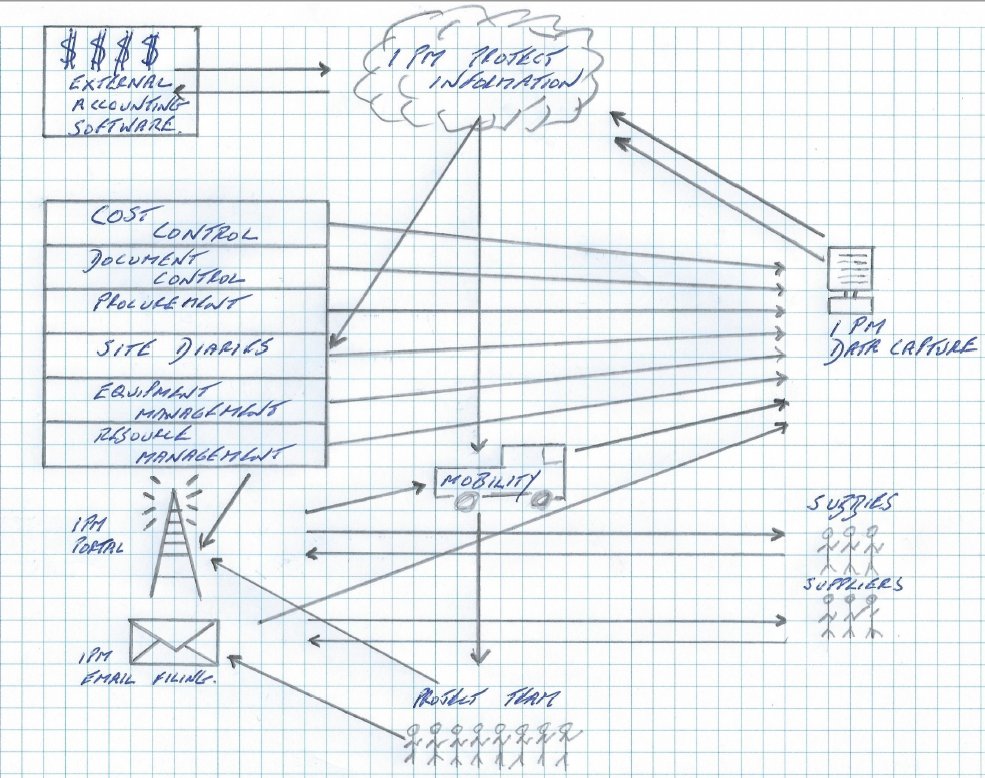 $ $ $ $
EXTERNAL
ACCOUNTING
SOFTWARE.
1 PM PROJECT
INFORMATION
COST
CONTROL
DOCUMENT
CONTROL
PROCUREMENT
SITE DIARIES
EQUIPMENT
MANAGEMENT
RESOURCE
MANAGEMENT
1 PM
DATA CAPTURE
MOBILITY
1PM
PORTAL
SUBBIES
SUPPLIERS
1PM
EMAIL FILING.
PROJECT TEAM